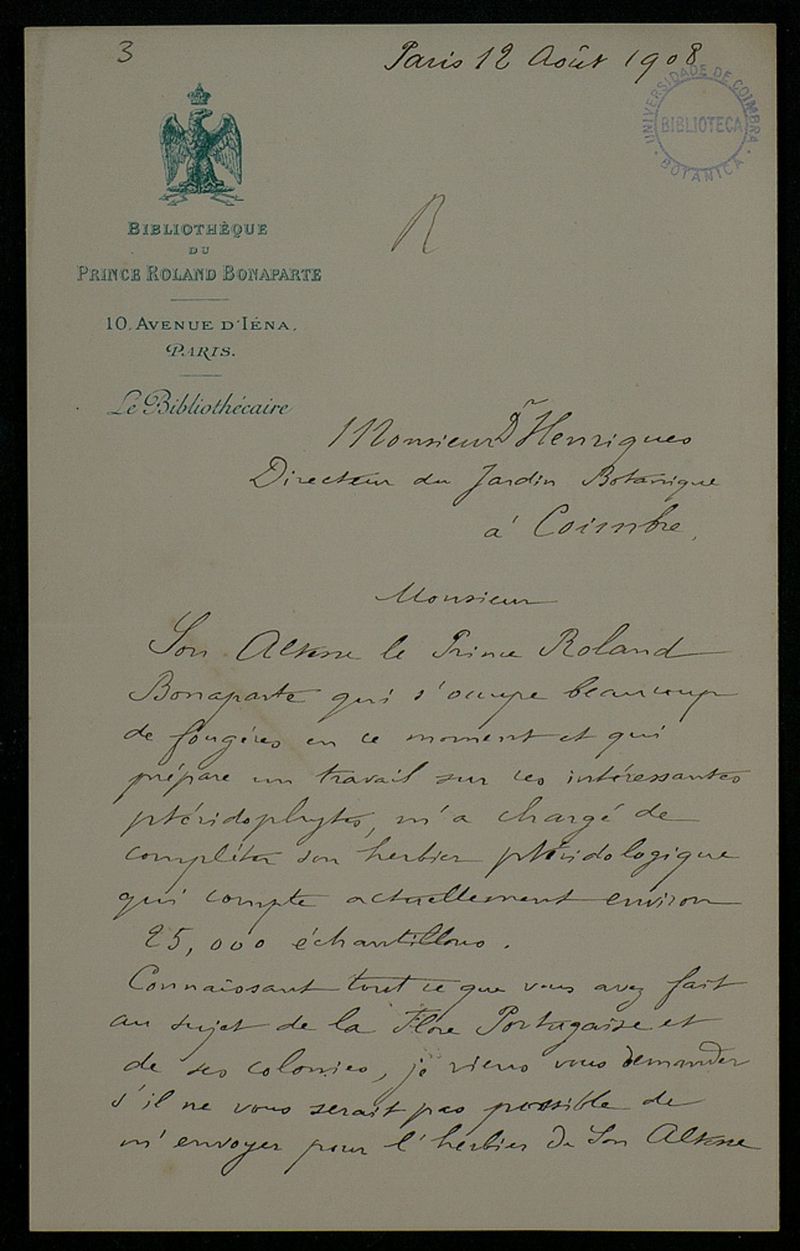 3
Paris 12 Août 1908
UNIVERSIDADE DE COIMBRA
BIBLIOTECA
BOTANICA
BIBLIOTHÈQUE
DU
PRINCE ROLAND BONAPARTE
R
10, AVENUE D'IÉNA,
PARIS.
Le Bibliothécaire
Monsieur Dr Henriques
Directeur du Jardin Botanique
à Coimbre,
Monsieur
Son Altesse le Prince Roland
Bonaparte qui s'occupe beaucoup
de fougères en ce moment et qui
prépare un travail sur ces intéressantes
ptéridophytes, m'a chargé de
compléter son herbier ptéridologique
qui compte actuellement environ
25,000 échantillons.
Connaissant tout ce que vous avez fait
au sujet de la Flore Portugaise et
de ses colonies, je viens vous demander
s'il ne vous serait pas possible de
m'envoyer pour l'herbier de Son Altesse